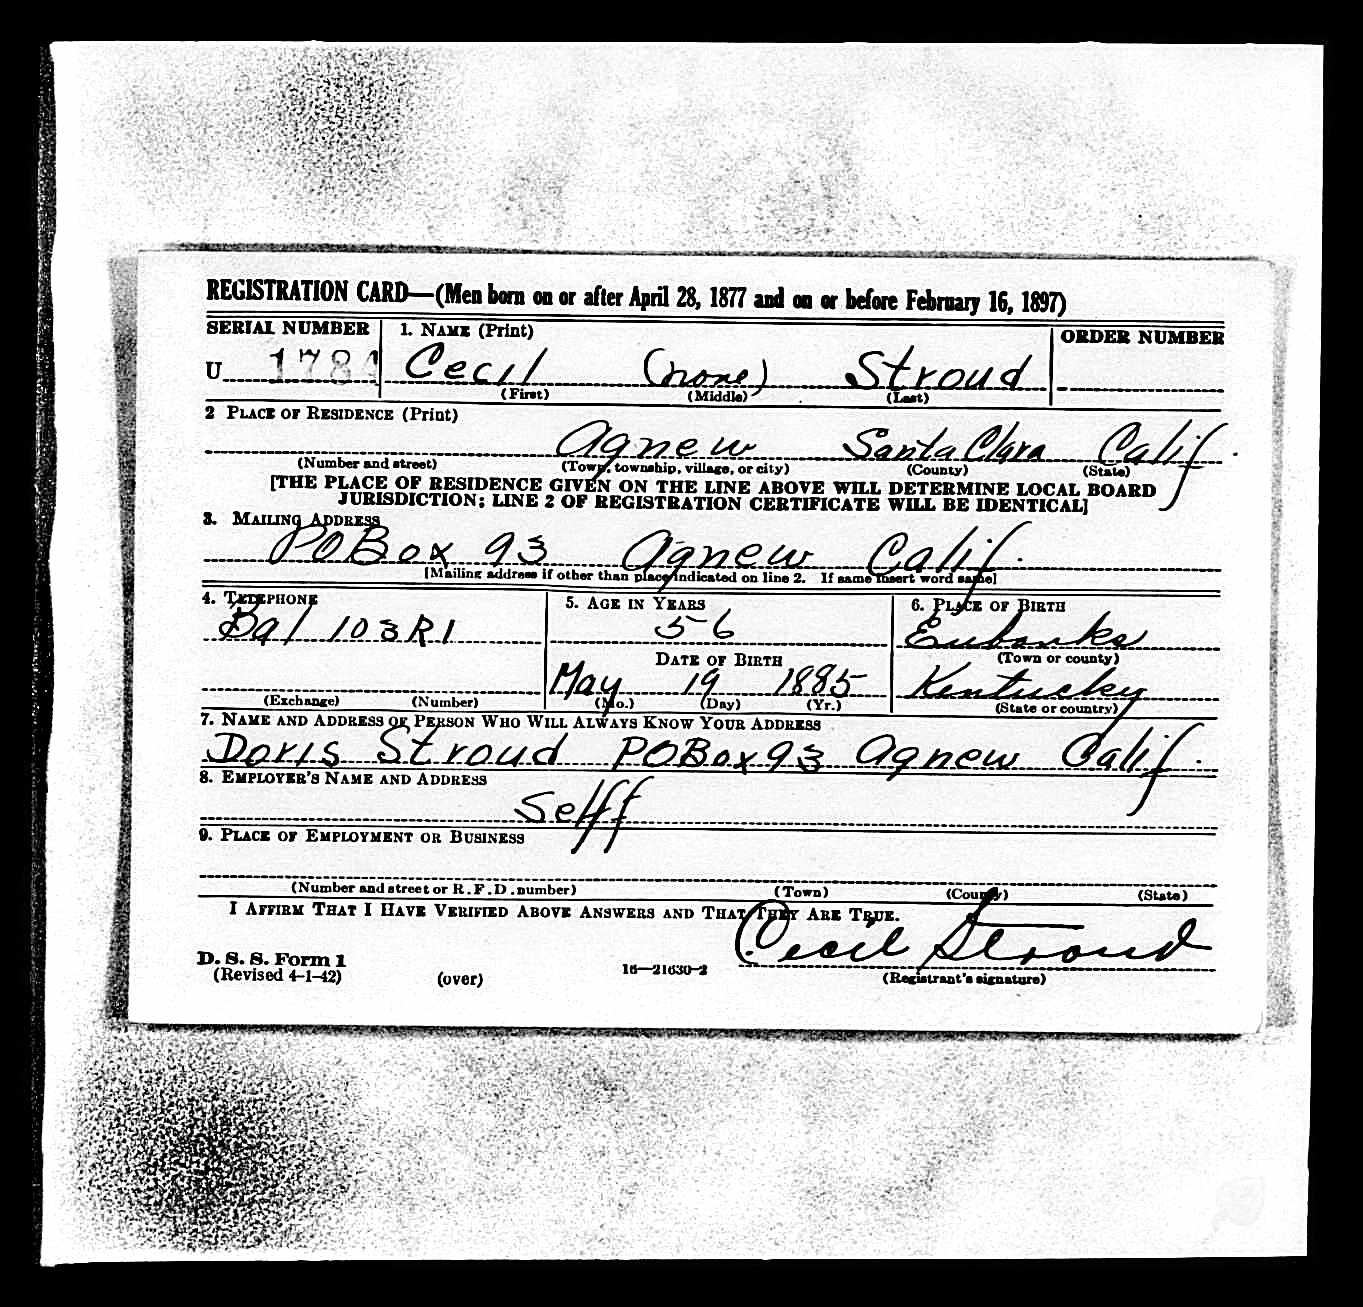 REGISTRATION CARD—(Men born on or after April 28, 1877 and on or before February 16, 1897)
SERIAL NUMBER 1. NAME (Print) ORDER NUMBER
U 1784 Cecil (none) Stroud
(First) (Middle) (Last)
2 PLACE OF RESIDENCE (Print)
Agnew Santa Clara Calif.
(Number and street) (Town, township, village, or city) (County) (State)
[THE PLACE OF RESIDENCE GIVEN ON THE LINE ABOVE WILL DETERMINE LOCAL BOARD
JURISDICTION; LINE 2 OF REGISTRATION CERTIFICATE WILL BE IDENTICAL]
3. MAILING ADDRESS
PO Box 93 Agnew Calif.
[Mailing address if other than place indicated on line 2. If same insert word same]
4. TELEPHONE 5. AGE IN YEARS 6. PLACE OF BIRTH
Bal 103R1 56 Eubanks
DATE OF BIRTH (Town or county)
May 19 1885 Kentucky
(Exchange) (Number) (Mo.) (Day) (Yr.) (State or country)
7. NAME AND ADDRESS OF PERSON WHO WILL ALWAYS KNOW YOUR ADDRESS
Doris Stroud PO Box 93 Agnew Calif.
8. EMPLOYER'S NAME AND ADDRESS
Selff
9. PLACE OF EMPLOYMENT OR BUSINESS
(Number and street or R.F.D. number) (Town) (County) (State)
I AFFIRM THAT I HAVE VERIFIED ABOVE ANSWERS AND THAT THEY ARE TRUE.
Cecil Stroud
D. S. S. Form 1
(Revised 4-1-42) (over) 16—21630-2 (Registrant's signature)